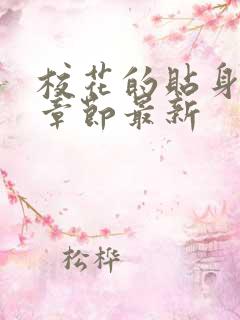 校花的贴身
章节最新
松桦